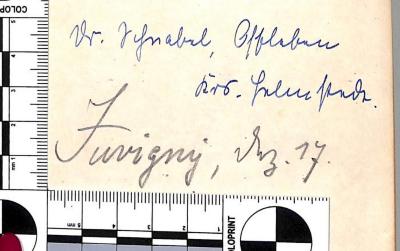 Dr. Schnabel, Offleben
Krs. Helmstedt.
Juvigny, Dez. 17.
COLOPRINT